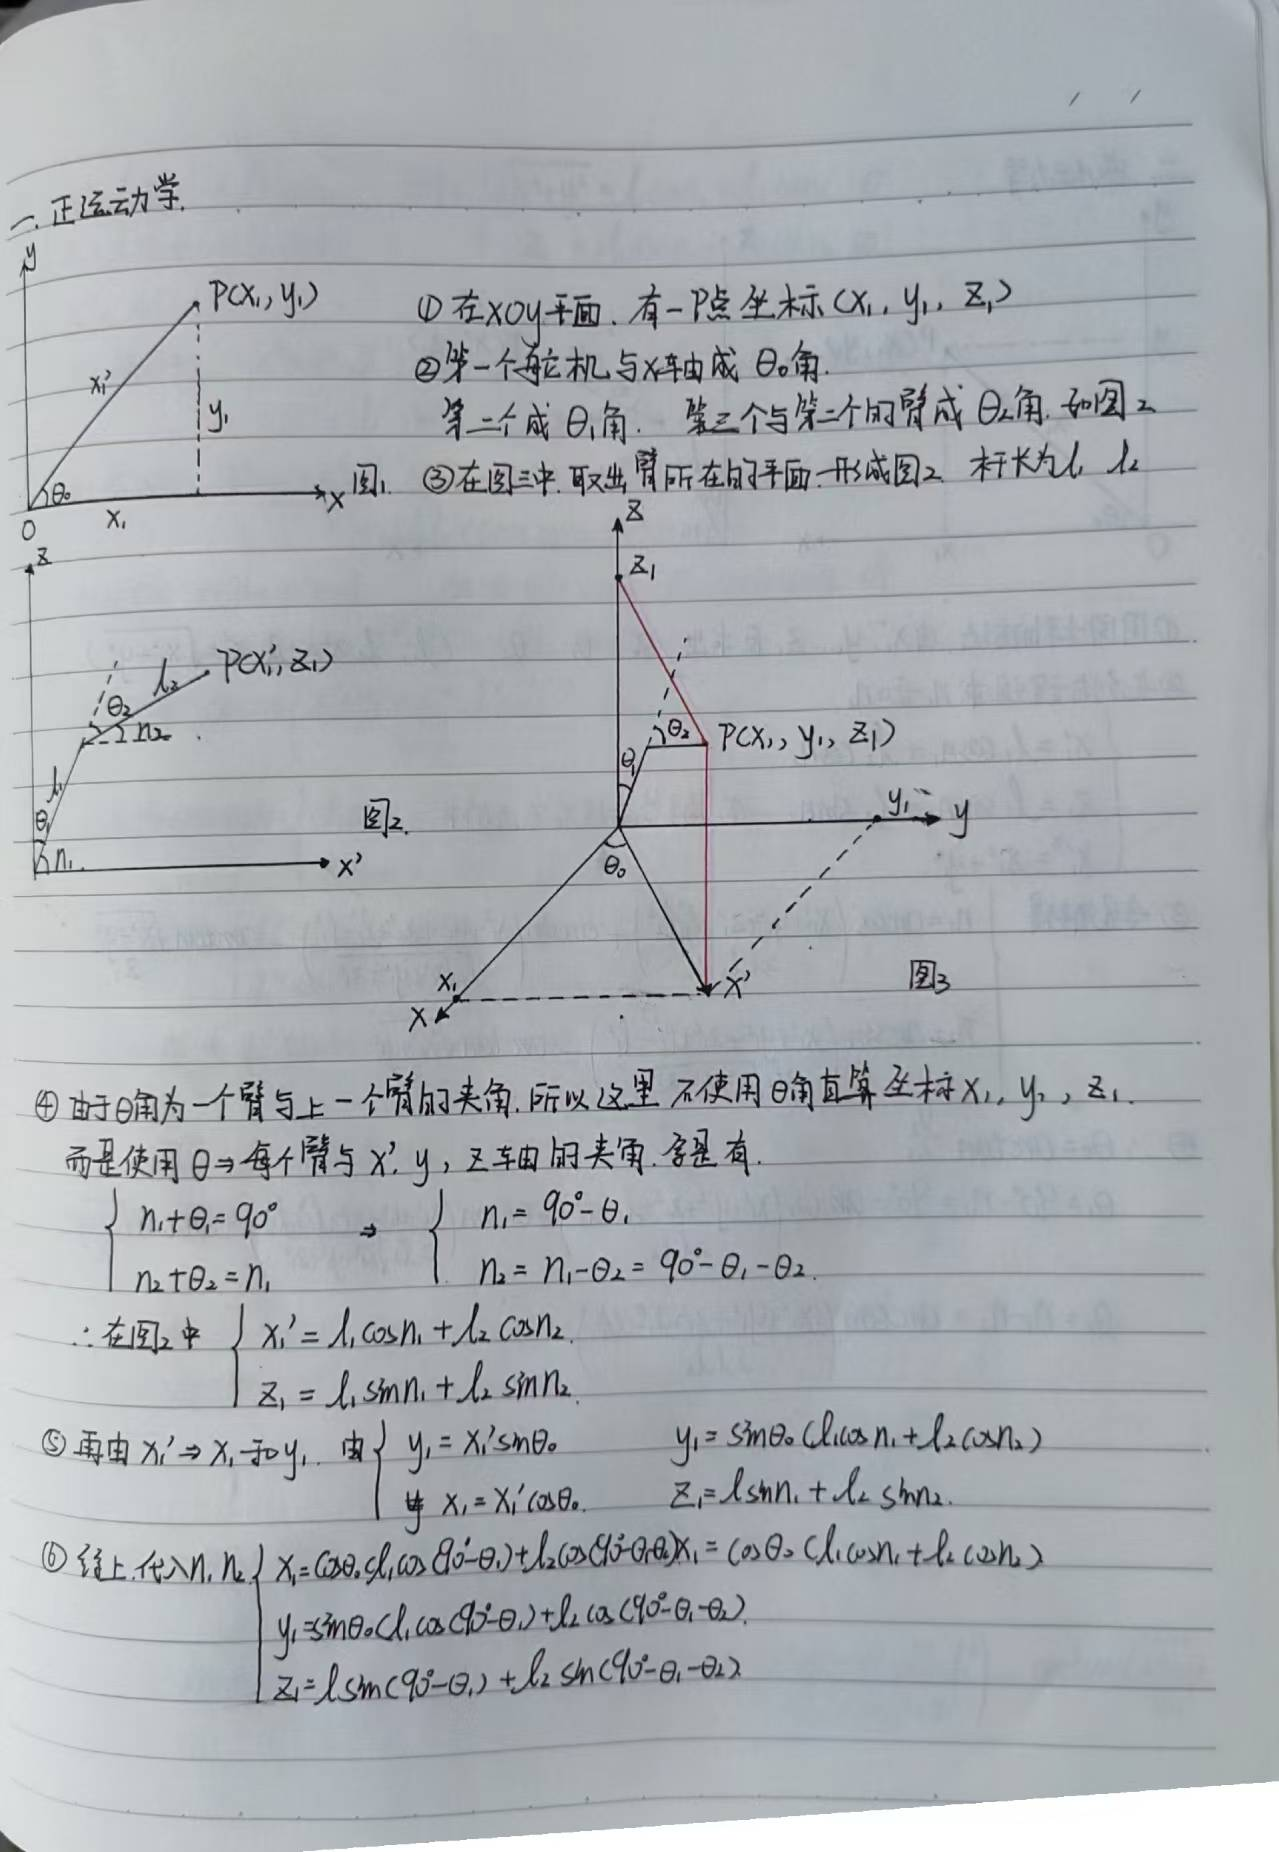 一. 正运动学.
y
P(x₁, y₁)
x₁'
y₁
θ₀
O
x₁
x
图1.
① 在xOy平面. 有一P点坐标(x₁, y₁, z₁)
② 第一个舵机与x轴成 θ₀角.
第二个成 θ₁角. 第三个与第二个的臂成 θ₂角. 如图2
③ 在图三中. 取出臂所在的平面. 形成图2. 杆长为l₁ l₂
z
P(x₁', z₁)
l₂
θ₂
n₂
l₁
θ₁
n₁
x'
图2.
z
z₁
θ₂
P(x₁, y₁, z₁)
θ₁
y₁
y
θ₀
x₁
x
x'
图3
④ 由于θ角为一个臂与上一个臂的夹角. 所以这里不使用θ角直算坐标x₁, y₁, z₁.
而是使用θ⇒每个臂与x', y, z轴的夹角. 于是有.
{ n₁+θ₁=90° ⇒ { n₁=90°-θ₁
n₂+θ₂=n₁ n₂=n₁-θ₂=90°-θ₁-θ₂.
∴在图2中 { x₁'=l₁cosn₁+l₂cosn₂.
z₁=l₁sinn₁+l₂sinn₂.
⑤ 再由x₁'⇒x₁和y₁. 由 { y₁=x₁'sinθ₀ y₁=sinθ₀(l₁cosn₁+l₂cosn₂)
x₁=x₁'cosθ₀. z₁=lsinn₁+l₂sinn₂.
⑥ 综上. 代入n₁ n₂. { x₁=cosθ₀(l₁cos(90°-θ₁)+l₂cos(90°-θ₁-θ₂) x₁=cosθ₀(l₁cosn₁+l₂cosn₂)
y₁=sinθ₀(l₁cos(90°-θ₁)+l₂cos(90°-θ₁-θ₂).
z₁=lsin(90°-θ₁)+l₂sin(90°-θ₁-θ₂).